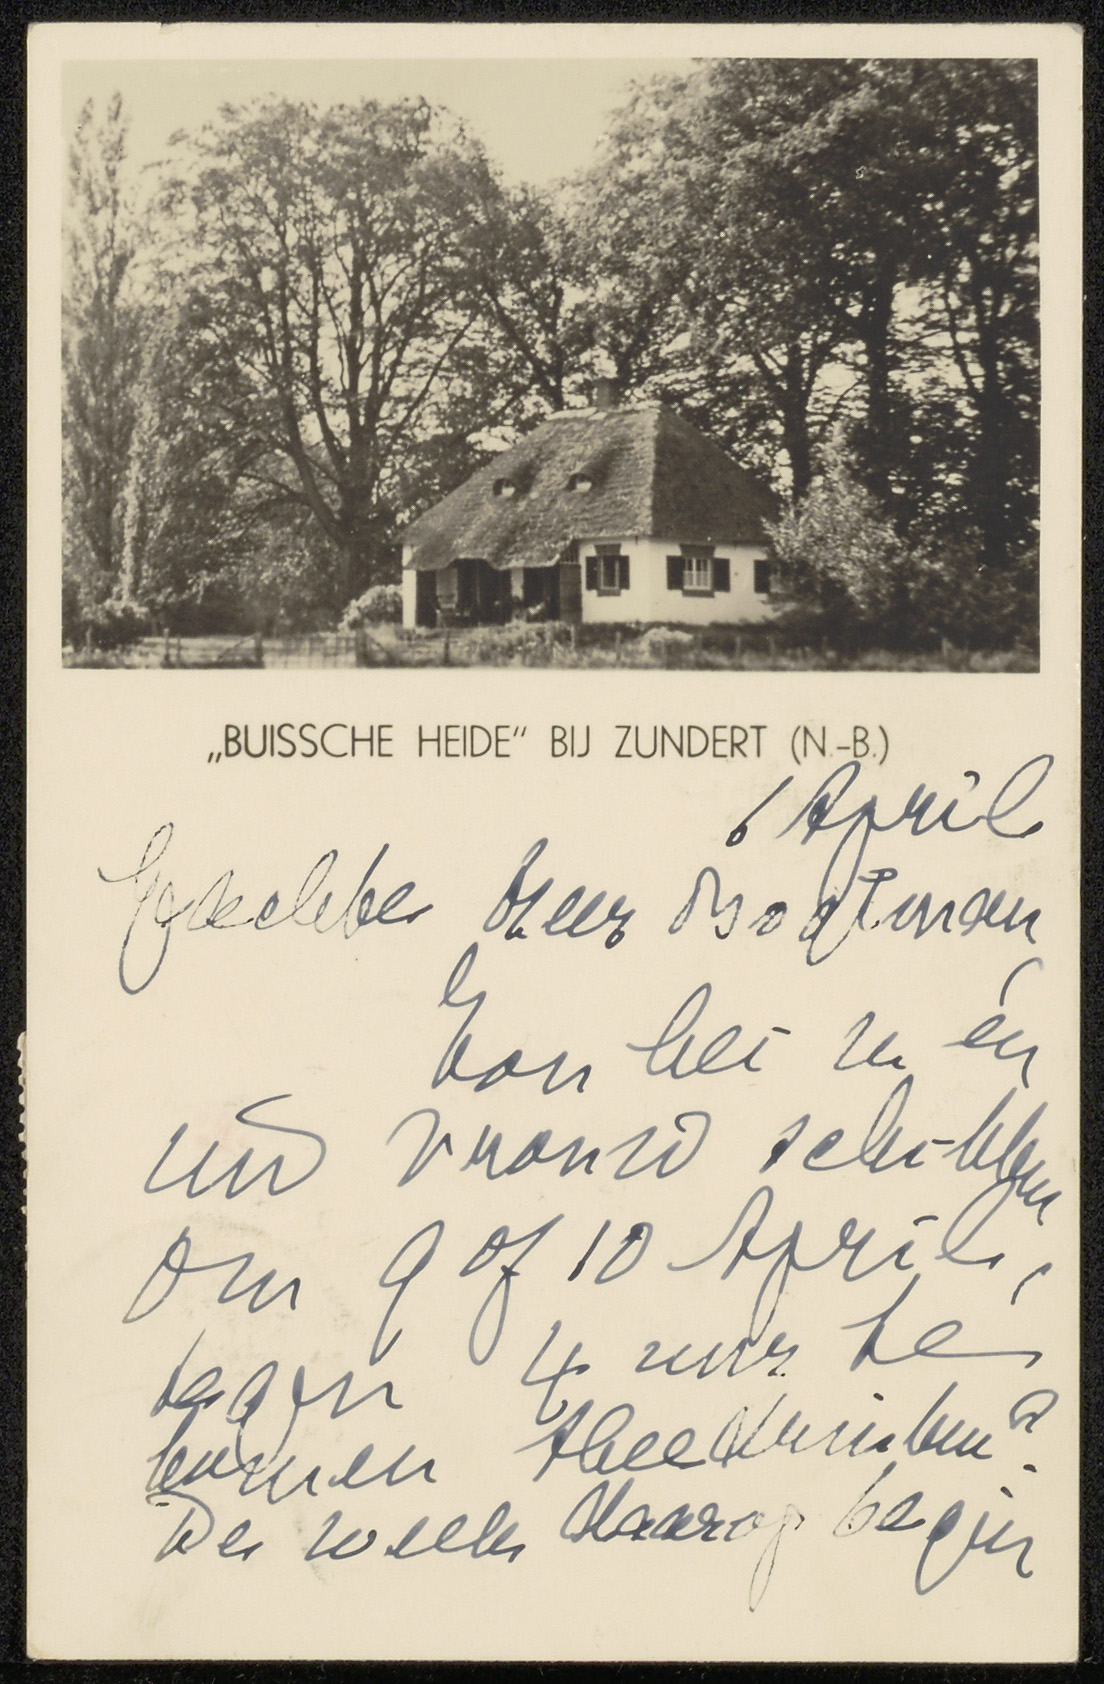 „BUISSCHE HEIDE“ BIJ ZUNDERT (N.-B.)
6 April
Geachte Heer Bogtman
Zou het u en
uw vrouw schikken
om 9 of 10 April,
tegen 4 uur te
komen theedrinken?
De week daarop begin